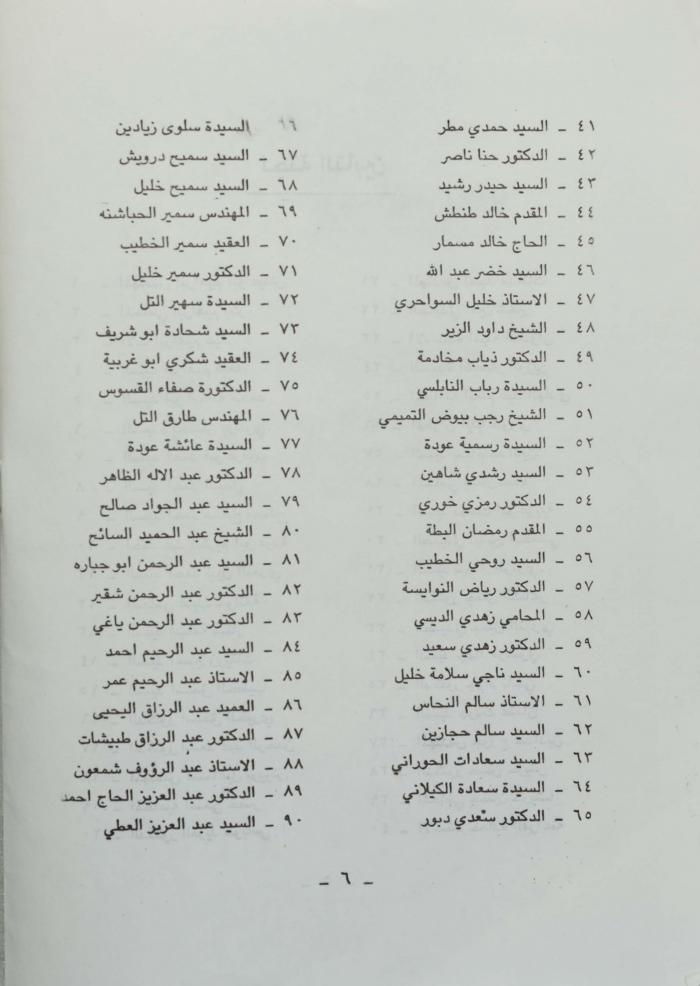 ٤١ - السيد حمدي مطر
٤٢ - الدكتور حنا ناصر
٤٣ - السيد حيدر رشيد
٤٤ - المقدم خالد طنطش
٤٥ - الحاج خالد مسمار
٤٦ - السيد خضر عبد الله
٤٧ - الاستاذ خليل السواحري
٤٨ - الشيخ داود الزير
٤٩ - الدكتور ذياب مخادمة
٥٠ - السيدة رباب النابلسي
٥١ - الشيخ رجب بيوض التميمي
٥٢ - السيدة رسمية عودة
٥٣ - السيد رشدي شاهين
٥٤ - الدكتور رمزي خوري
٥٥ - المقدم رمضان البطة
٥٦ - السيد روحي الخطيب
٥٧ - الدكتور رياض النوايسة
٥٨ - المحامي زهدي الديسي
٥٩ - الدكتور زهدي سعيد
٦٠ - السيد ناجي سلامة خليل
٦١ - الاستاذ سالم النحاس
٦٢ - السيد سالم حجازين
٦٣ - السيد سعادات الحوراني
٦٤ - السيدة سعادة الكيلاني
٦٥ - الدكتور سعدي دبور
٦٦ السيدة سلوى زيادين
٦٧ - السيد سميح درويش
٦٨ - السيد سميح خليل
٦٩ - المهندس سمير الحباشنه
٧٠ - العقيد سمير الخطيب
٧١ - الدكتور سمير خليل
٧٢ - السيدة سهير التل
٧٣ - السيد شحادة ابو شريف
٧٤ - العقيد شكري ابو غربية
٧٥ - الدكتورة صفاء القسوس
٧٦ - المهندس طارق التل
٧٧ - السيدة عائشة عودة
٧٨ - الدكتور عبد الاله الظاهر
٧٩ - السيد عبد الجواد صالح
٨٠ - الشيخ عبد الحميد السائح
٨١ - السيد عبد الرحمن ابو جباره
٨٢ - الدكتور عبد الرحمن شقير
٨٣ - الدكتور عبد الرحمن ياغي
٨٤ - السيد عبد الرحيم احمد
٨٥ - الاستاذ عبد الرحيم عمر
٨٦ - العميد عبد الرزاق اليحيى
٨٧ - الدكتور عبد الرزاق طبيشات
٨٨ - الاستاذ عبد الرؤوف شمعون
٨٩ - الدكتور عبد العزيز الحاج احمد
٩٠ - السيد عبد العزيز العطي
- ٦ -